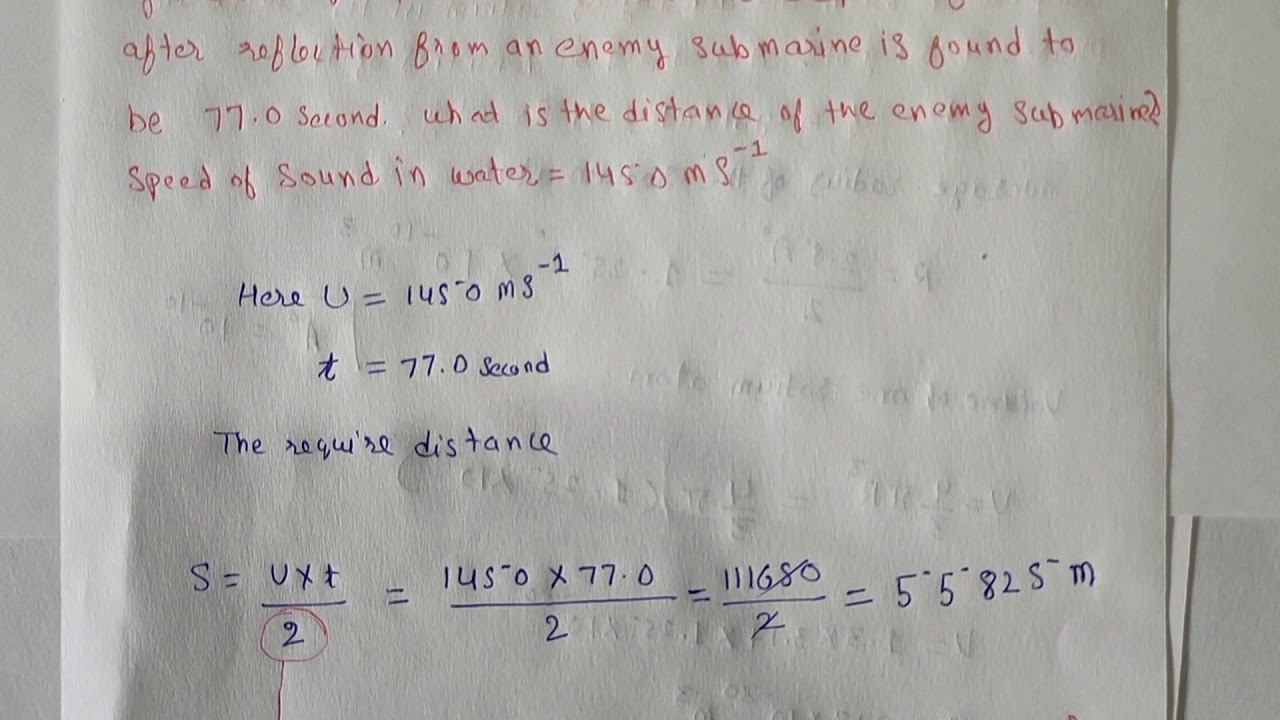 after reflection from an enemy submarine is found to
be 77.0 second. what is the distance of the enemy submarine?
Speed of Sound in water = 1450 mS⁻¹
Here U = 1450 mS⁻¹
t = 77.0 second
The require distance
S = U×t/2 = 1450 × 77.0/2 = 111680/2 = 55825 m